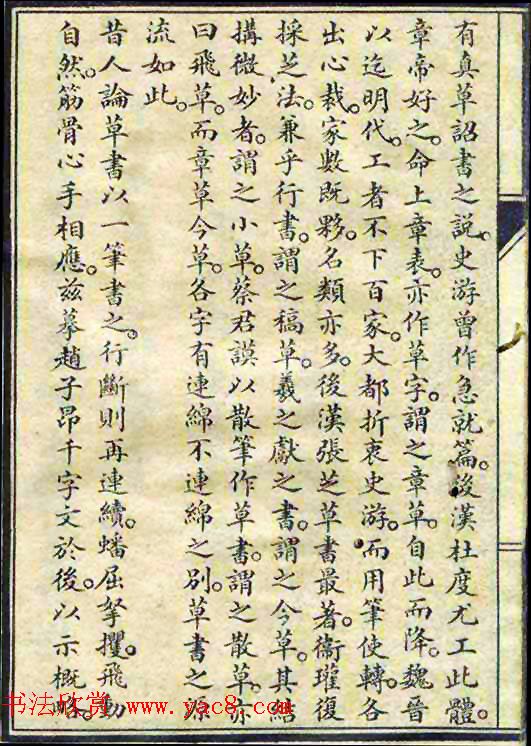 有真草詔書之說。史游曾作急就篇。後漢杜度尤工此體。
章帝好之。命上章表。亦作草字。謂之章草。自此而降。魏晉
以迄明代。工者不下百家。大都折衷史游。而用筆使轉。各
出心裁。家數既夥。名類亦多。後漢張芝草書最著。衞瓘復
採芝法。兼乎行書。謂之稿草。羲之獻之書。謂之今草。其結
搆微妙者。謂之小草。蔡君謨以散筆作草書。謂之散草。亦
曰飛草。而章草今草。各字有連綿不連綿之別。草書之源
流如此。
昔人論草書以一筆書之。行斷則再連續。蟠屈拏攫。飛動
自然。筋骨心手相應。茲摹趙子昂千字文於後。以示概略。
书法欣赏 www.yac8.com